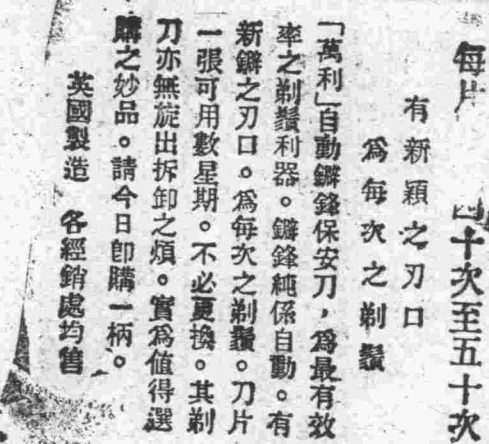 每片 四十次至五十次
有新穎之刃口
為每次之剃鬚
「萬利」自動鐴鋒保安刀，為最有效
率之剃鬚利器。鐴鋒純係自動。有
新鐴之刃口。為每次之剃鬚。刀片
一張可用數星期。不必更換。其剃
刀亦無旋出拆卸之煩。實為值得選
購之妙品。請今日卽購一柄。
英國製造 各經銷處均售